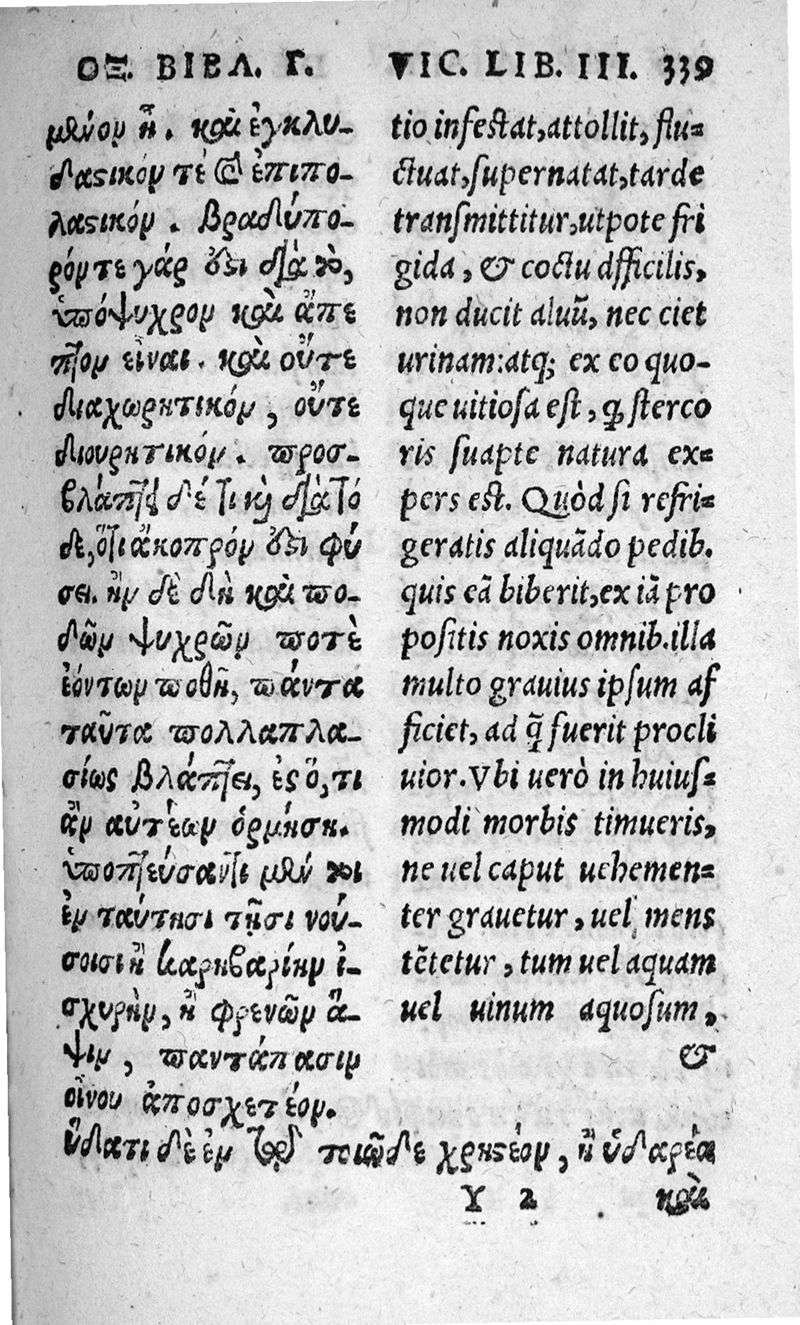 ΟΞ. ΒΙΒΛ. Γ.
μενον ἢ. καὶ ἐγκλυ-
δαστικόν τε καὶ ἐπιπο-
λαστικόν. βραδύπο-
ρόν τε γάρ ὅτι διὰ τὸ,
ὑπόψυχρον καὶ ἄπε
πτον εἶναι. καὶ οὔτε
διαχωρητικόν, οὔτε
διουρητικόν. προσ-
βλάπτει δέ τι καὶ διὰ τό
δε, ὅτι ἄκοπρόν ὅτι φύ
σει. ἢν δὲ δὴ καὶ πο-
δῶν ψυχρῶν ποτὲ
ἐόντων ποθῇ, πάντα
ταῦτα πολλαπλα-
σίως βλάπτει, ἐς ὅ,τι
ἂν αὐτέων ὁρμήσῃ.
ὑποπτεύσαντι μέν τοι
ἐν ταύτῃσι τῇσι νού-
σοισιν ἢ καρηβαρίην ἰ-
σχυρὴν, ἢ φρενῶν ἅ-
ψιν, παντάπασιν
οἴνου ἀποσχετέον.
ὕδατι δὲ ἐν τῷ τοιῷδε χρηστέον, ἢ ὑδαρέα
VIC. LIB. III. 339
tio infestat, attollit, flu-
ctuat, supernatat, tarde
transmittitur, utpote fri
gida, & coctu dfficilis,
non ducit aluũ, nec ciet
urinam: atq; ex eo quo-
que uitiosa est, q̃ sterco
ris suapte natura ex-
pers est. Quòd si refri-
geratis aliquãdo pedib.
quis eã biberit, ex iã pro
positis noxis omnib. illa
multo grauius ipsum af
ficiet, ad q̃ fuerit procli
uior. Vbi uerò in huius-
modi morbis timueris,
ne uel caput uehemen-
ter grauetur, uel mens
tẽtetur, tum uel aquam
uel uinum aquosum,
&
Y 2 καὶ